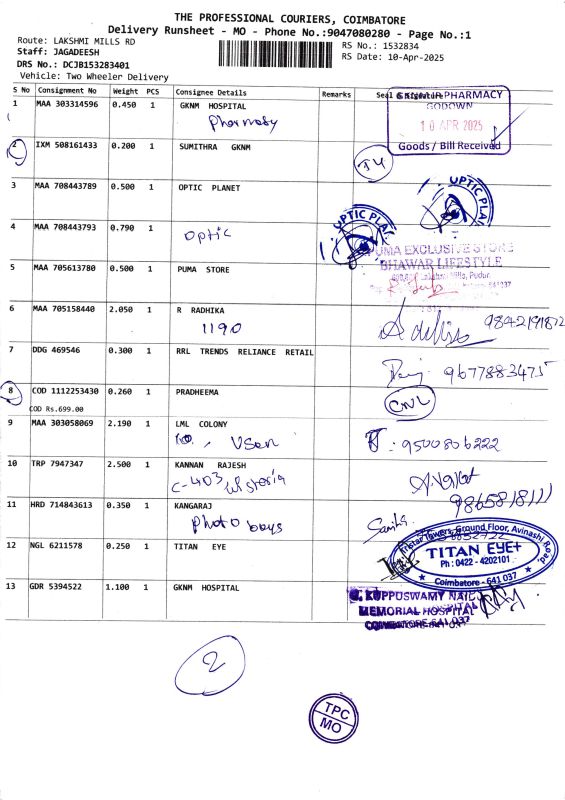 THE PROFESSIONAL COURIERS, COIMBATORE
Delivery Runsheet - MO - Phone No.:9047080280 - Page No.:1
Route: LAKSHMI MILLS RD
RS No.: 1532834
Staff: JAGADEESH
RS Date: 10-Apr-2025
DRS No.: DCJB153283401
Vehicle: Two Wheeler Delivery
S No Consignment No Weight PCS Consignee Details Remarks Seal & Signature
1 MAA 303314596 0.450 1 GKNM HOSPITAL
Pharmasy
PHARMACY
GODOWN
10 APR 2025
Goods / Bill Received
2 IXM 508161433 0.200 1 SUMITHRA GKNM
3 MAA 708443789 0.500 1 OPTIC PLANET
OPTIC PLA
4 MAA 708443793 0.790 1
Optic
OPTIC PLA
5 MAA 705613780 0.500 1 PUMA STORE
PUMA EXCLUSIVE STORE
BHAWAR LIFESTYLE
6 MAA 705158440 2.050 1 R RADHIKA
1190
7 DDG 469546 0.300 1 RRL TRENDS RELIANCE RETAIL
8 COD 1112253430 0.260 1 PRADHEEMA
COD Rs.699.00
CNL
9 MAA 303058069 2.190 1 LML COLONY
9500806222
10 TRP 7947347 2.500 1 KANNAN RAJESH
C-403
11 HRD 714843613 0.350 1 KANGARAJ
Photo boys
12 NGL 6211578 0.250 1 TITAN EYE
Tristar Towers, Ground Floor, Avinashi Road,
TITAN EYE+
Ph : 0422 - 4202101
Coimbatore - 641 037
13 GDR 5394522 1.100 1 GKNM HOSPITAL
G. KUPPUSWAMY NAIDU
MEMORIAL HOSPITAL
COIMBATORE-641 037
2
TPC
MO